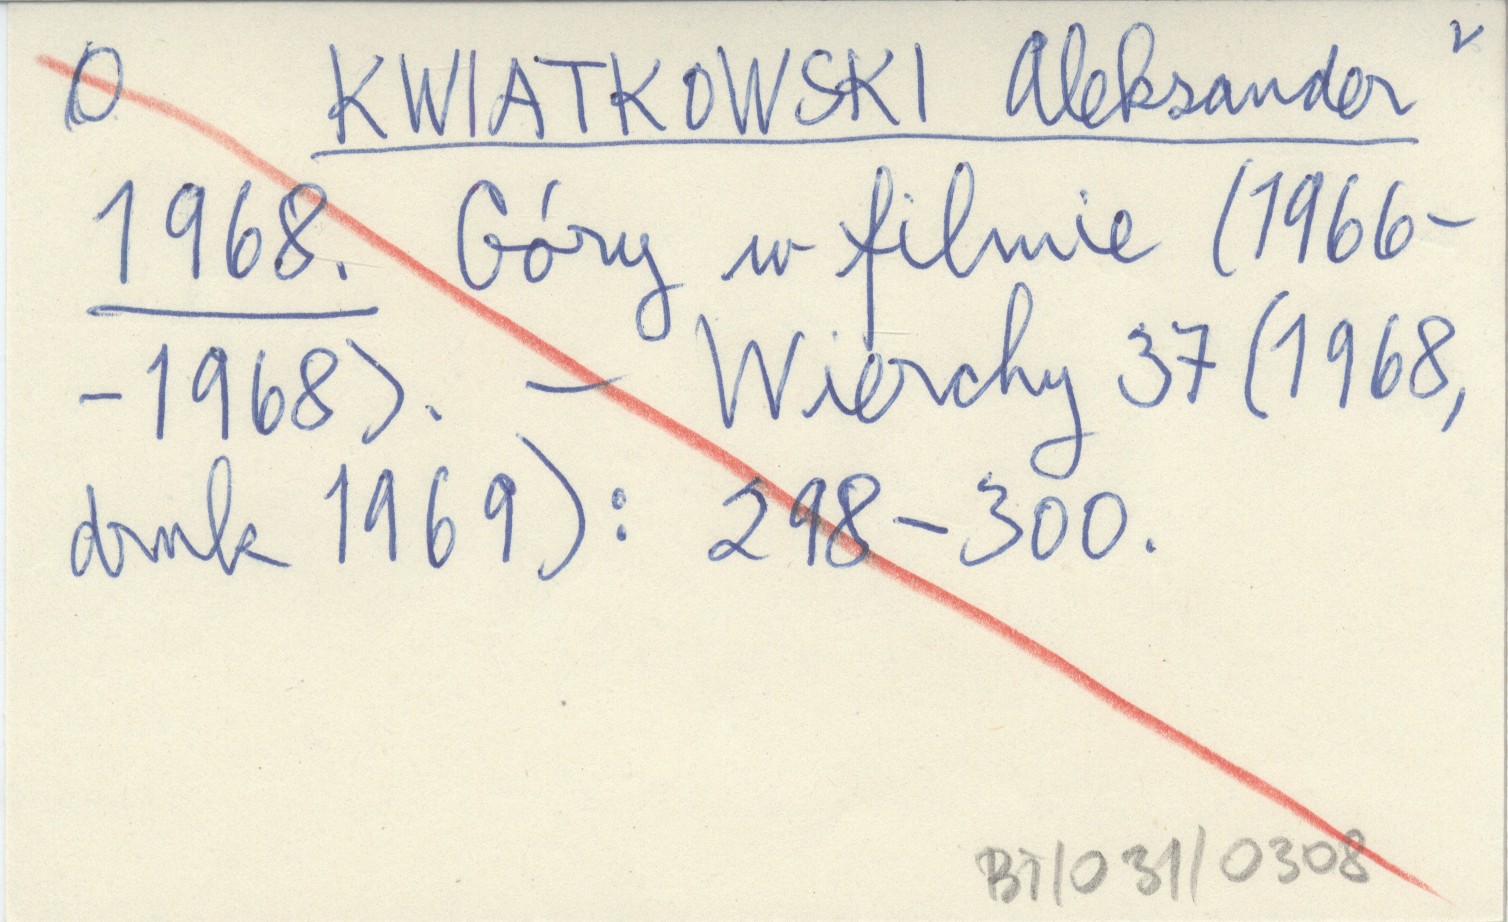 O KWIATKOWSKI Aleksander v
1968. Góry w filmie (1966-
-1968). – Wierchy 37 (1968,
druk 1969): 298-300.
BT/031/0308